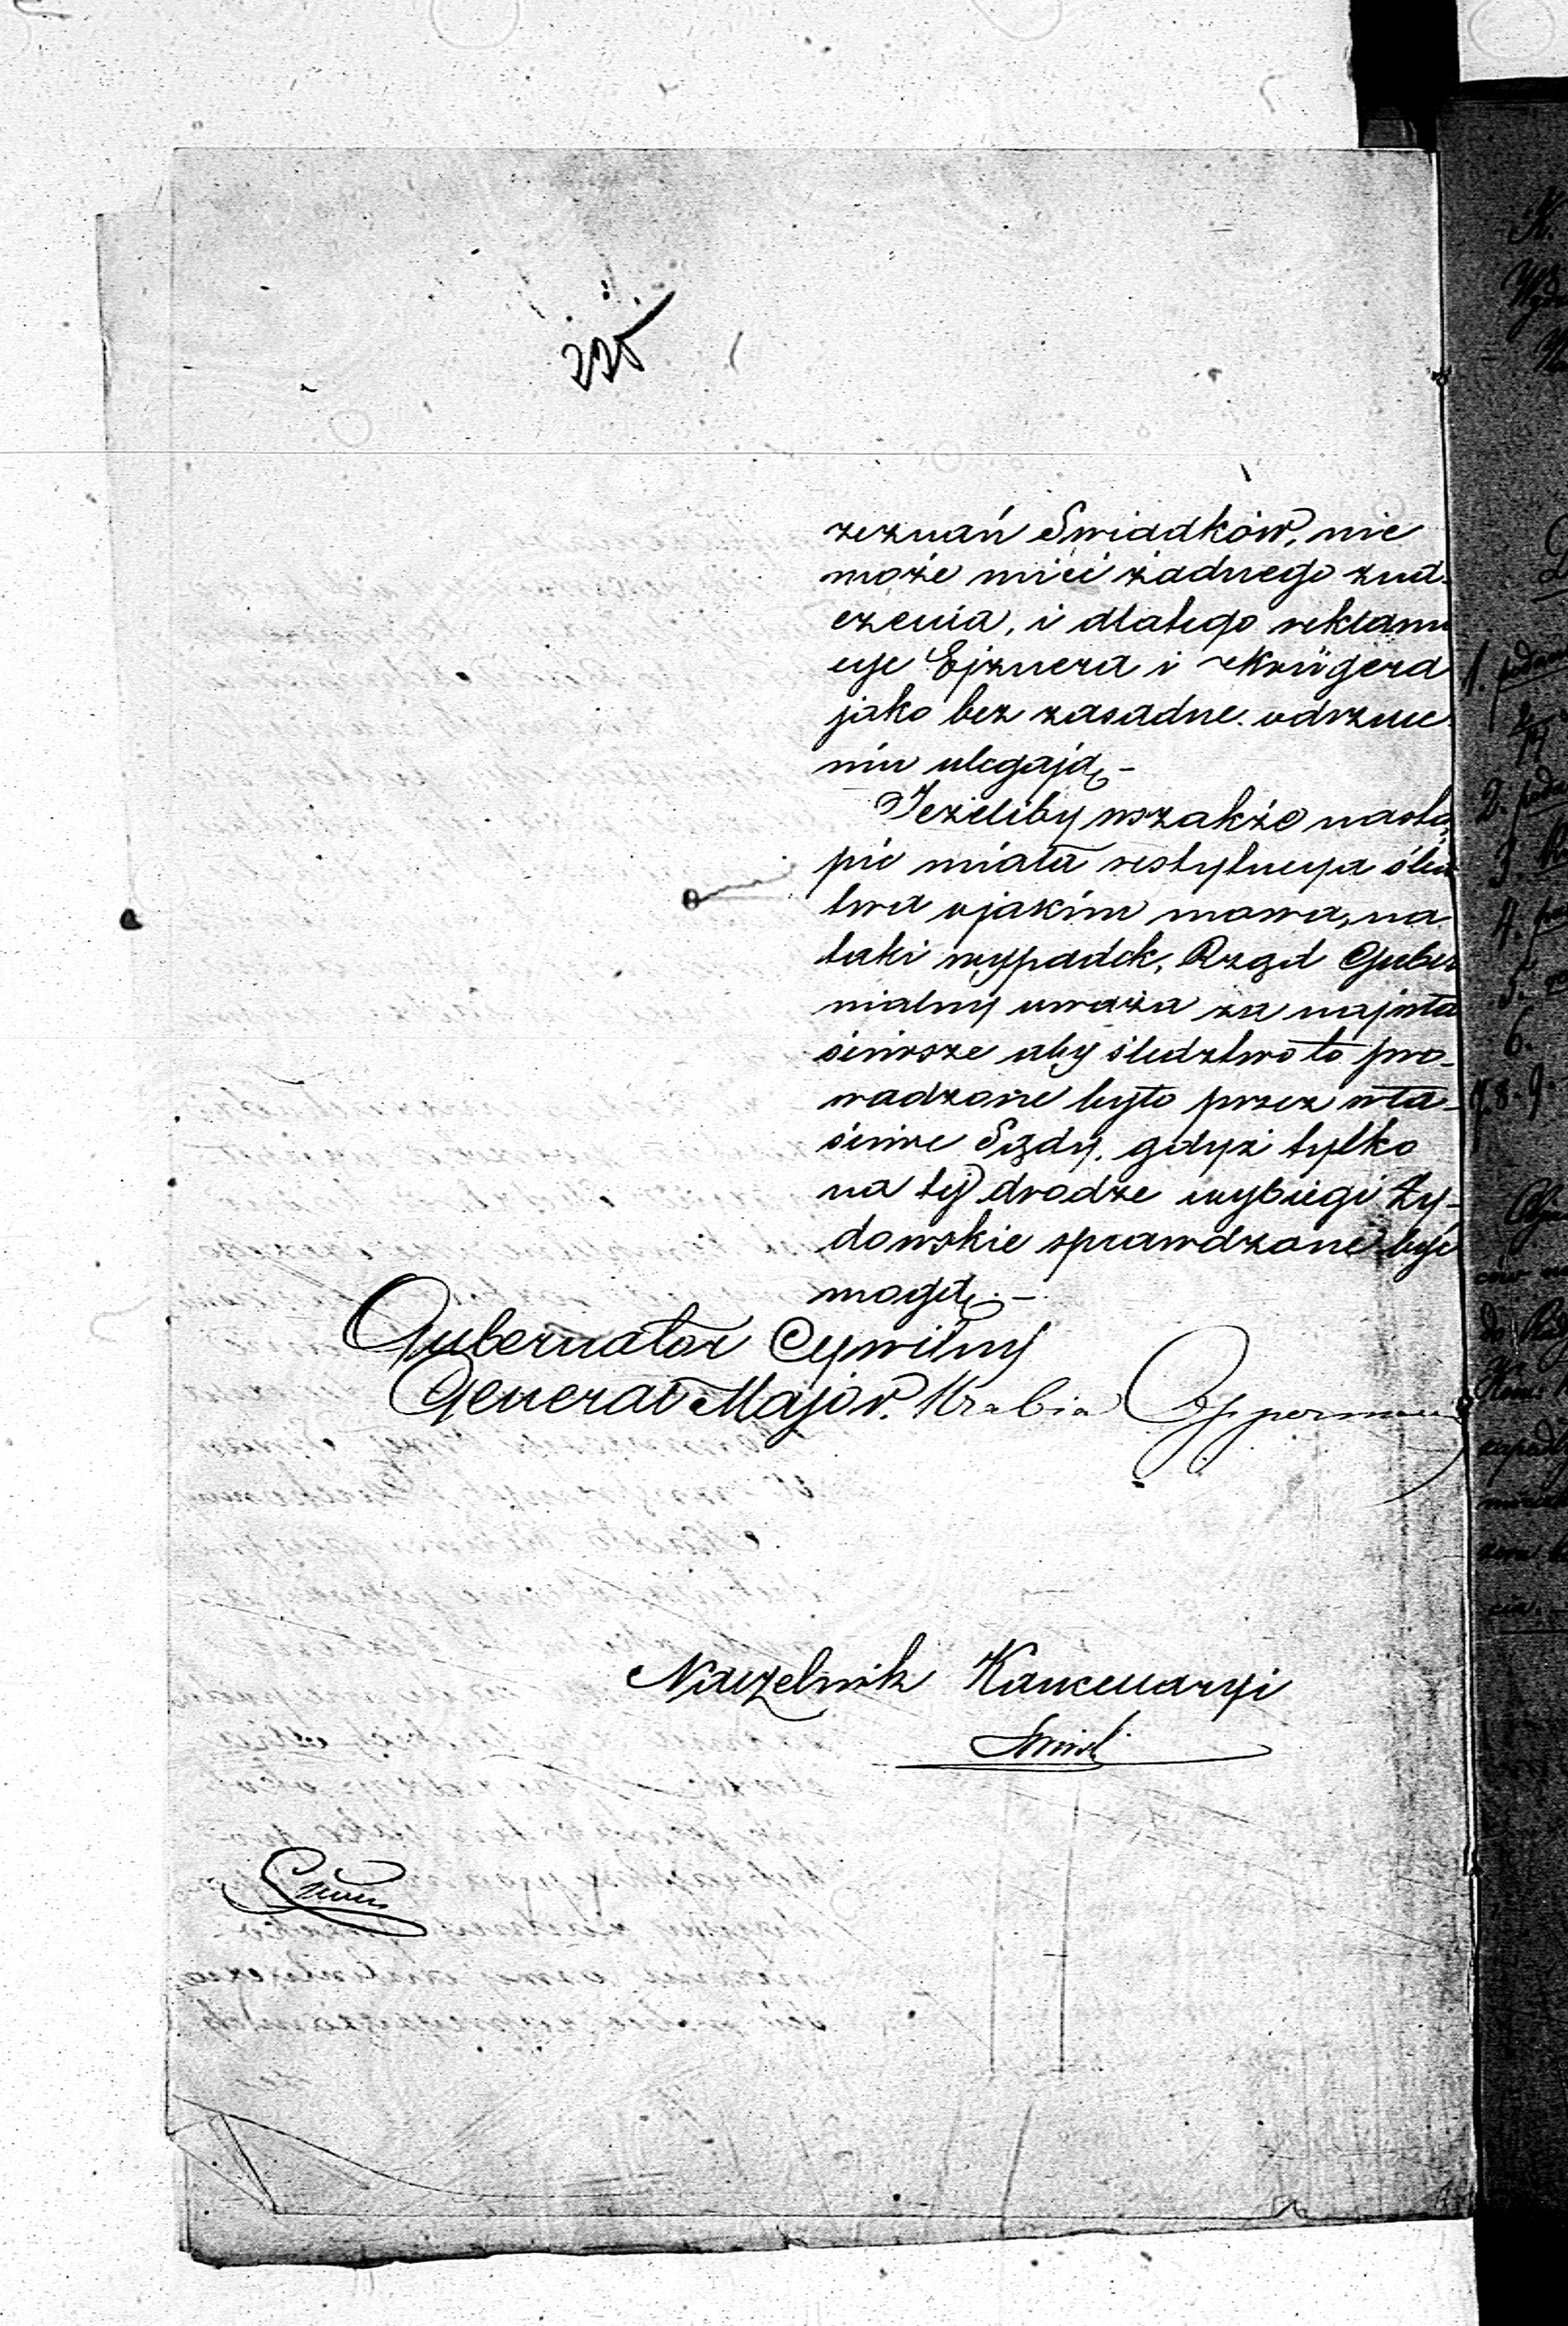 225
zeznań Swiadków, nie
może mieć żadnego zna-
czenia, i dlatego reklama
cye Ejznera i Krügera
jako bez zasadne odrzuce
niu ulegają –
Jeżeliby wszakże nastą
pić miała restytucya śledz
twa o jakim mowa, na
taki wypadek, Rząd Guber
nialny uważa za najwła
ściwsze aby śledztwo to pro-
wadzone było przez wła-
ściwe Sądy, gdyż tylko
na tej drodze wybiegi Ży-
dowskie sprawdzone być
mogą. –
Gubernator Cywilny
Generał Major. Hrabia Opperman
Naczelnik Kancellaryi
1.
2.
3.
4.
5.
6.
7.8.9.